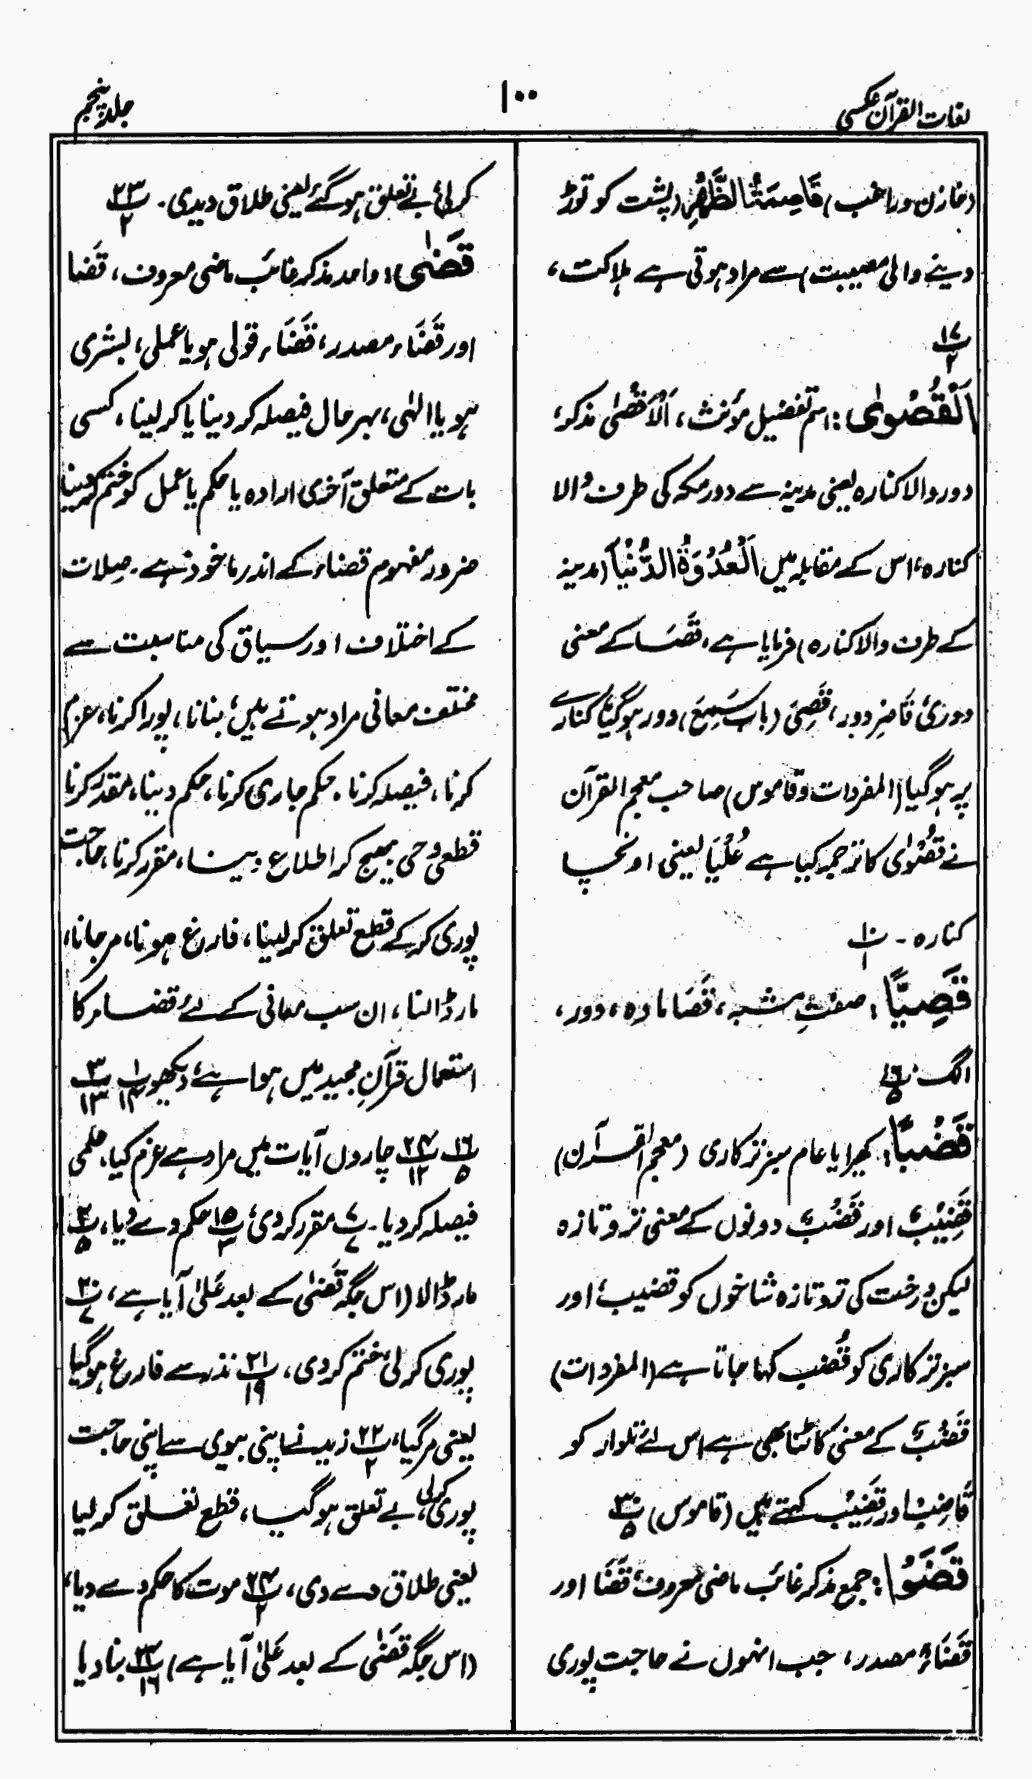 لغات القرآن عکسی
۱۰۰
جلد پنجم
(خازن وراغب) قَاصِمَۃُ الظَّہْرِ (پشت کو توڑ
دینے والی مصیبت) سے مراد ہوتی ہے ہلاکت،
پ۱۷ ۲
اَلْقُصْوٰی: اسم تفضیل مؤنث، اَلْاَقْصٰی مذکر،
دور والا کنارہ یعنی مدینہ سے دور مکہ کی طرف والا
کنارہ، اس کے مقابلہ میں اَلْعُدْوَۃُ الدُّنْیَا (مدینہ
کے طرف والا کنارہ) فرمایا ہے، قَصَا کے معنی
دوری، قَاصٍ دور، قَصِیَ (باب سَمِعَ) دور ہوگیا، کنارے
پر ہوگیا (المفردات وقاموس) صاحب معجم القرآن
نے قُصْوٰی کا ترجمہ کیا ہے عُلْیَا یعنی اونچا
کنارہ۔ پ۱۰ ۱
قَصِیًّا: صفت مشبہ، قَصَا مادہ، دور،
الگ، پ۱۶ ۵
قَضْبًا: کھیرا یا عام سبز ترکاری (معجم القرآن)
قَضِیْبٌ اور قَضْبٌ دونوں کے معنی تروتازہ
لیکن درخت کی تروتازہ شاخوں کو قضیب، اور
سبز ترکاری کو قُضب کہا جاتا ہے (المفردات)
قَضْبٌ کے معنی کاٹنا بھی ہے اس لئے تلوار کو
قَاضِبٌ اور قَضِیْبٌ کہتے ہیں (قاموس) پ۳۰ ۵
قَضَوْا: جمع مذکر غائب ماضی معروف، قَضَا اور
قَضَاءٌ مصدر، جب انہوں نے حاجت پوری
کرلی، بے تعلق ہوگئے یعنی طلاق دیدی۔ پ۲۳ ۲
قَضٰی: واحد مذکر غائب ماضی معروف، قَضَا
اور قَضَاء مصدر، قَضَاء قولی ہو یا عملی، بشری
ہو یا الٰہی، بہرحال فیصلہ کر دینا یا کر لینا، کسی
بات کے متعلق آخری ارادہ یا حکم یا عمل کو ختم کر دینا
ضرور مفہوم قضاء کے اندر ماخوذ ہے۔ صِلات
کے اختلاف اور سیاق کی مناسبت سے
مختلف معانی مراد ہوتے ہیں، بنانا، پورا کرنا، عزم
کرنا، فیصلہ کرنا۔ حکم جاری کرنا، حکم دینا، مقدر کرنا
قطعی وحی بھیج کر اطلاع دینا، مقرر کرنا، حاجت
پوری کرکے قطع تعلق کر لینا، فارغ ہونا، مرجانا،
مار ڈالنا، ان سب معانی کے لئے قضاء کا
استعمال قرآن مجید میں ہوا ہے، دیکھو پ۱ ۱۴ پ۳ ۱۳
پ۱۶ ۵ پ۲۴ ۱۲ چاروں آیات میں مراد ہے عزم کیا، علمی
فیصلہ کر دیا۔ پ۷ ۷ مقرر کر دی، پ۱۵ ۳ حکم دے دیا، پ۲۰ ۵
مار ڈالا (اس جگہ قَضٰی کے بعد عَلٰی آیا ہے، پ۲۰ ۷
پوری کرلی، ختم کردی، پ۲۱ ۱۹ نذر سے فارغ ہوگیا
یعنی مرگیا، پ۲۲ ۲ زید نے اپنی بیوی سے اپنی حاجت
پوری کرلی، بے تعلق ہوگیا، قطع تعلق کر لیا
یعنی طلاق دے دی، پ۲۴ ۲ موت کا حکم دے دیا،
(اس جگہ قَضٰی کے بعد عَلٰی آیا ہے) پ۲۴ ۱۶ بنا دیا